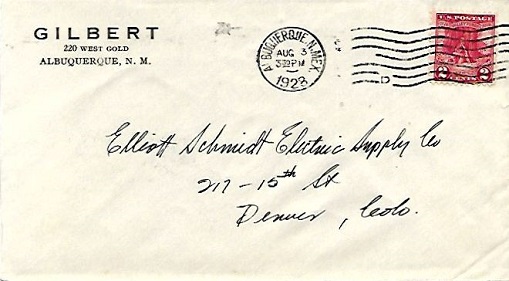 GILBERT
220 WEST GOLD
ALBUQUERQUE, N. M.
ALBUQUERQUE, N. MEX.
AUG 3
3 30 PM
1928
U.S. POSTAGE
2 2
D
Elliott Schmidt Electric Supply Co
217-15th St
Denver, Colo.